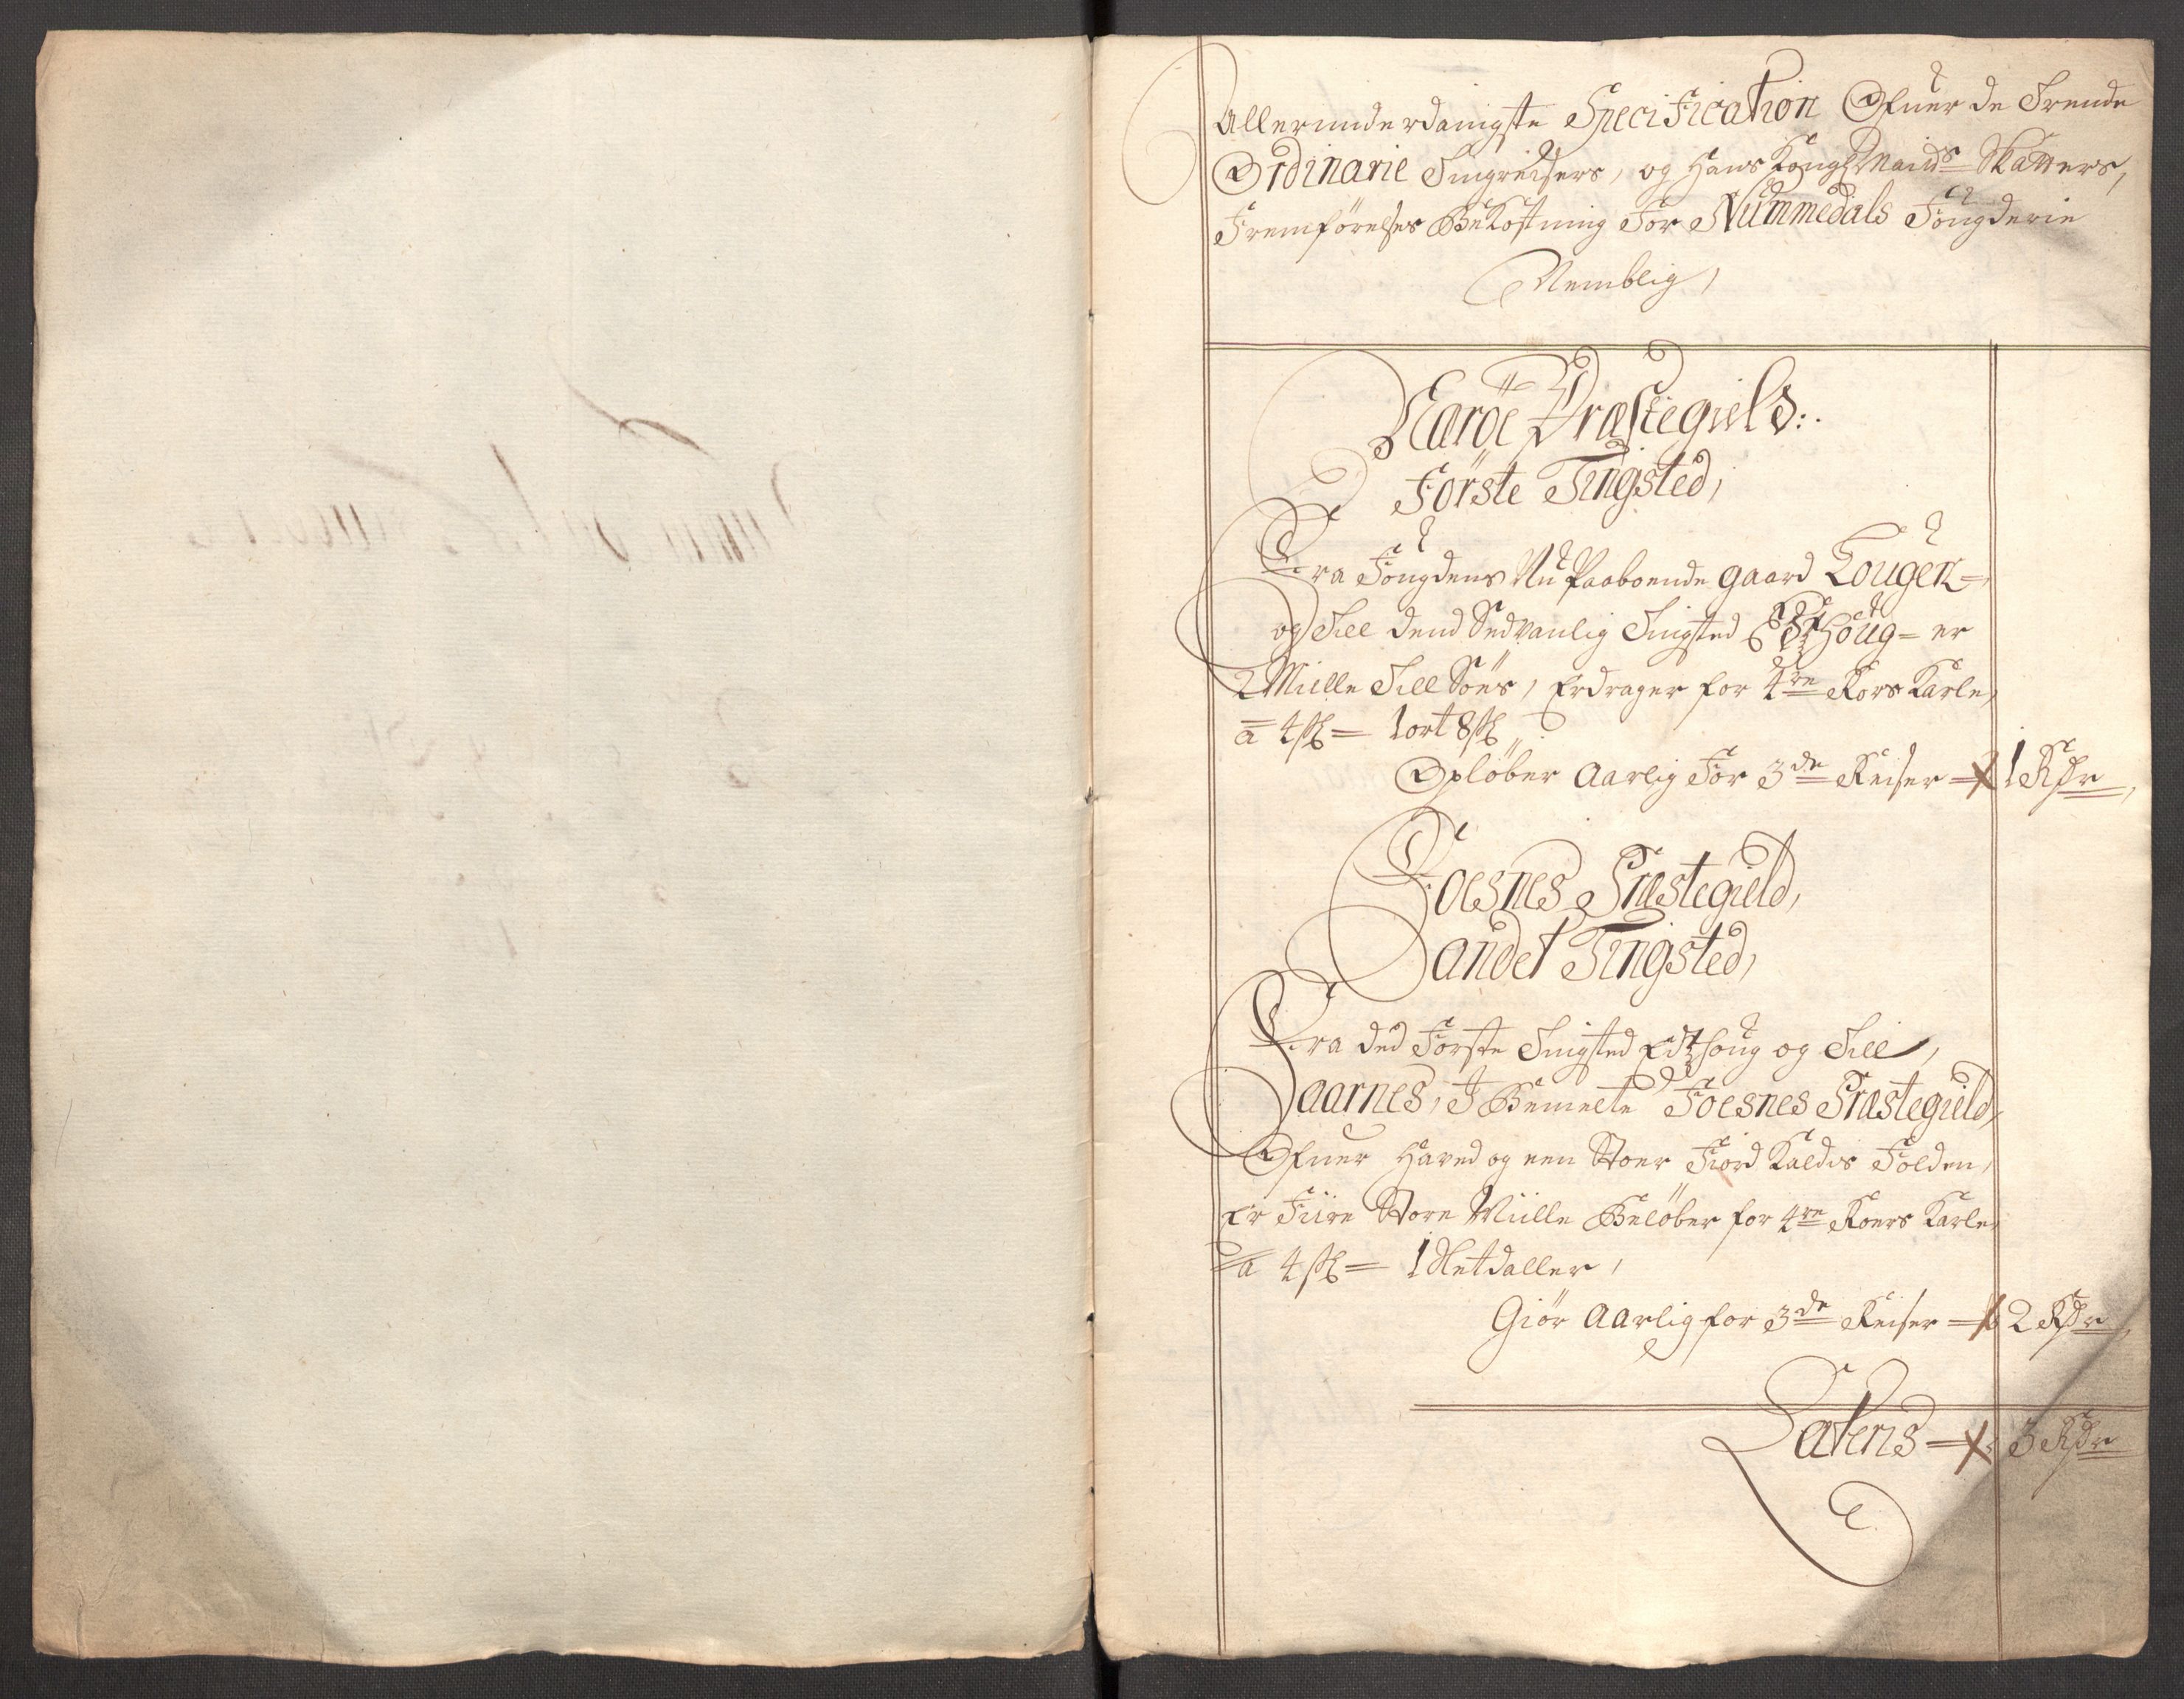 Allerunderdanigste Specification Ofuer de Trende
Ordinarie Tingreisers, og Hans Kongl Maids Skatters,
Fremförelses Bekostning For Nummedals Fougderie
Nemblig,
Næröe Præstegield:.
Förste Tingsted,
Fra Fougdens Nu Paaboende gaard Lougen=
og Till dend Sedvanlig Tingsted Edtzhoug= er
2 Miille Till Söes, Erdrager for 4re Rors Karle,
a 4 sk = 1 ort 8 sk
Opløber Aarlig For 3de Reiser = 1 Rdr
Foesnes Præstegield,
Andet Tingsted,
Fra ded Förste Tingsted Edtzhoug og Till,
Saarnes, I Bemelte Foesnes Præstegield,
Ofuer Haved og een Stoer Fiord Kaldis Folden,
Er Fiire Store Miille Beløber for 4re Roers Karle
a 4 sk = 1 Netdaller,
Giör Aarlig for 3de Reiser = 2 Rdr
Latens = 3 Rdr